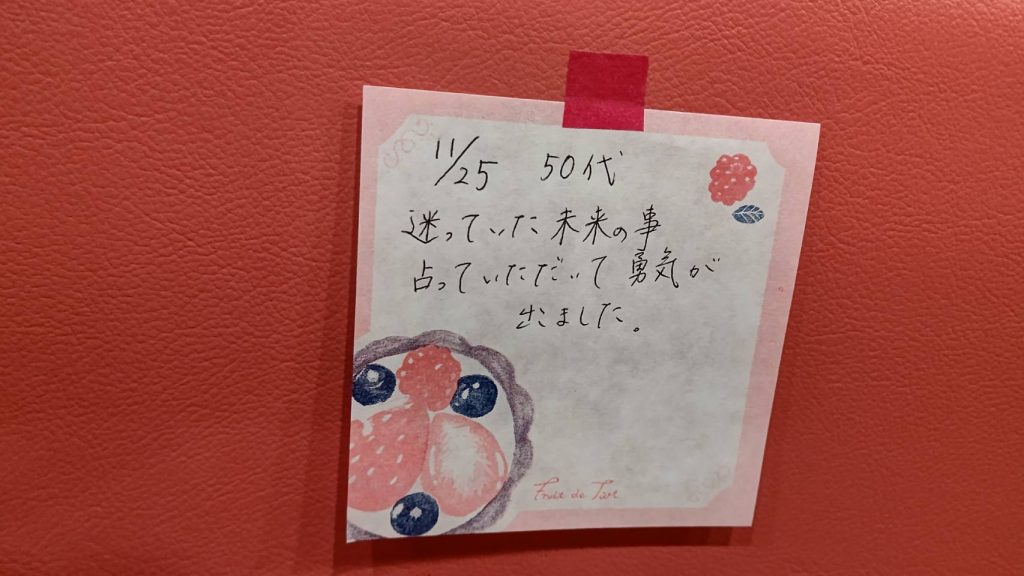 11/25 50代
迷っていた未来の事
占っていただいて勇気が
出ました。
Fruit de Tart